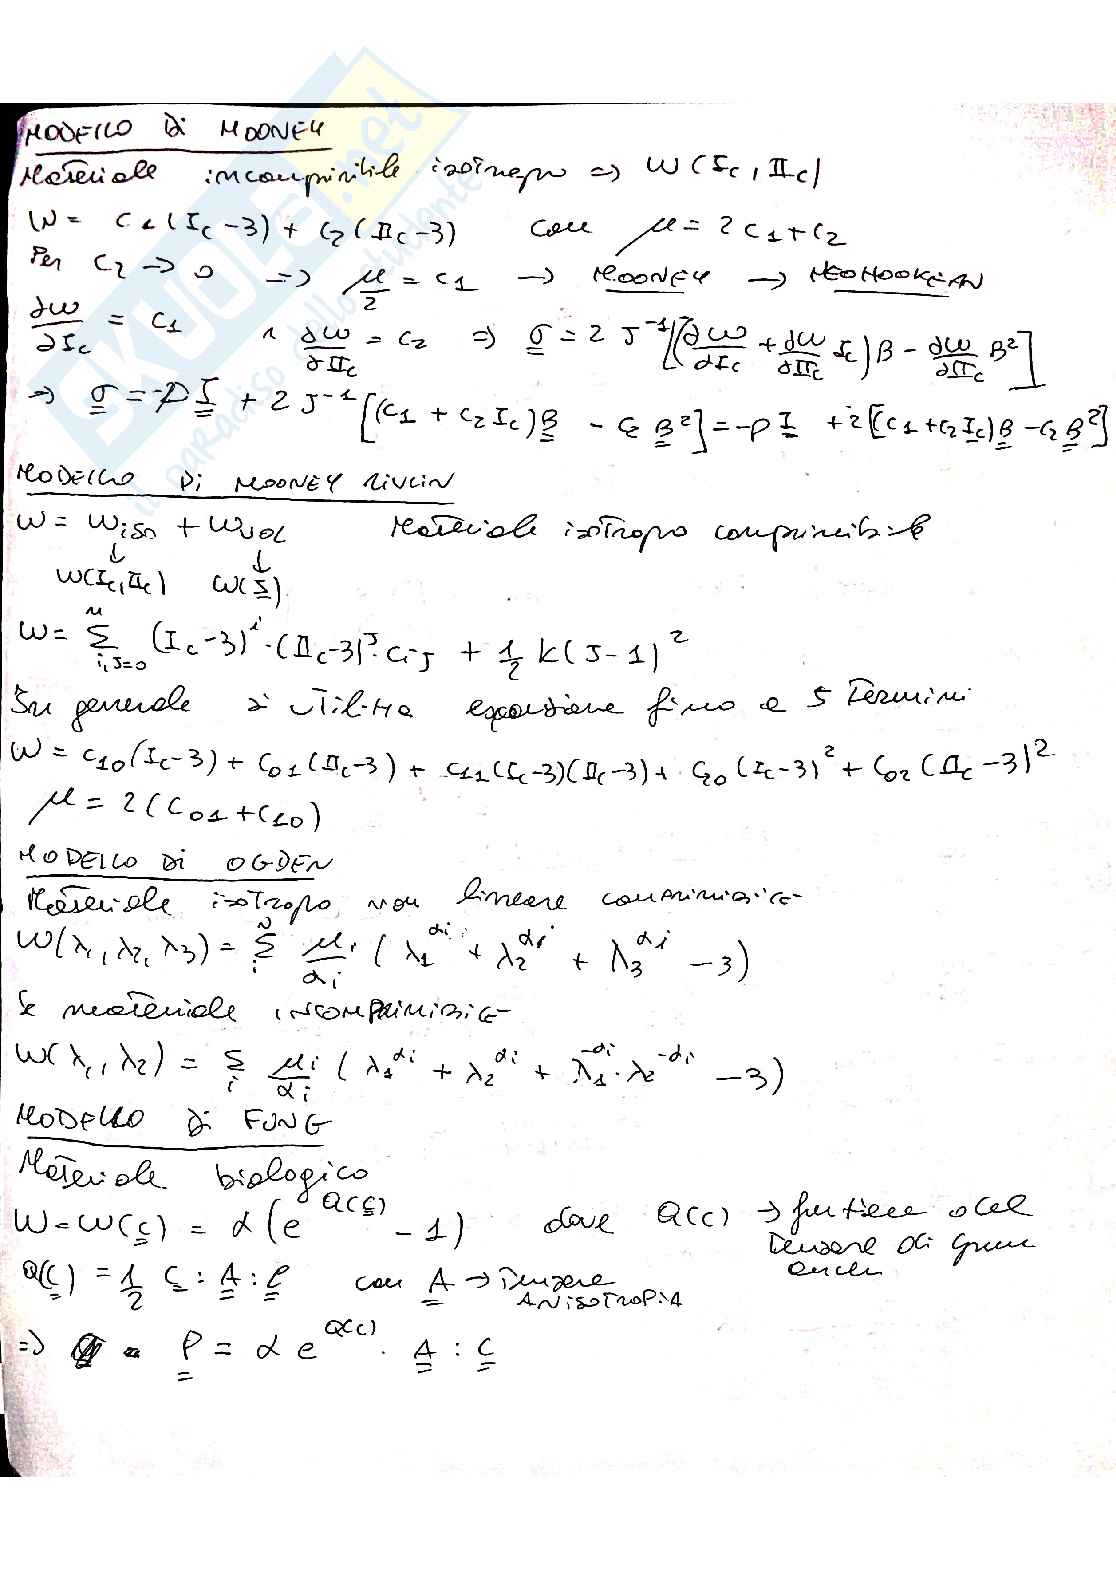 MODELLO Di MOONEY
Materiale incomprimibile isotropo => W(I_c, II_c)
W = C1(I_c-3) + C2(II_c-3) con μ = 2 C1+C2
Per C2 → 0 => μ/2 = C1 → MOONEY → NEOHOOKEAN
∂W/∂I_c = C1 ∧ ∂W/∂II_c = C2 => σ = 2 J^-1[(∂W/∂I_c + ∂W/∂II_c I_c)B - ∂W/∂II_c B^2]
=> σ = -p I + 2 J^-1[(C1 + C2 I_c)B - C2 B^2] = -p I + 2[(C1+C2 I_c)B - C2 B^2]
MODELLO Di MOONEY RIVLIN
W = W_iso + W_vol Materiale isotropo comprimibile
↓ ↓
W(I_c, II_c) W(J)
W = Σ_{i,J=0}^{n} (I_c-3)^i · (II_c-3)^J · C_iJ + 1/2 k(J-1)^2
In generale si utilizza espansione fino a 5 Termini
W = C10(I_c-3) + C01(II_c-3) + C11(I_c-3)(II_c-3) + C20(I_c-3)^2 + C02(II_c-3)^2
μ = 2(C01+C10)
MODELLO Di OGDEN
Materiale isotropo, non lineare comprimibile
W(λ1, λ2, λ3) = Σ_i^N μi/αi (λ1^αi + λ2^αi + λ3^αi - 3)
Se materiale incomprimibile
W(λ1, λ2) = Σ_i μi/αi (λ1^αi + λ2^αi + λ1^-αi · λ2^-αi - 3)
MODELLO Di FUNG
Materiale biologico
W = W(C) = α(e^Q(C) - 1) dove Q(C) → funzione del
Tensore di Green
Q(C) = 1/2 C : A : C con A → Tensore
ANISOTROPIA
=> P = α e^Q(C) · A : C
il paradiso dello studente
SKUOLA.net